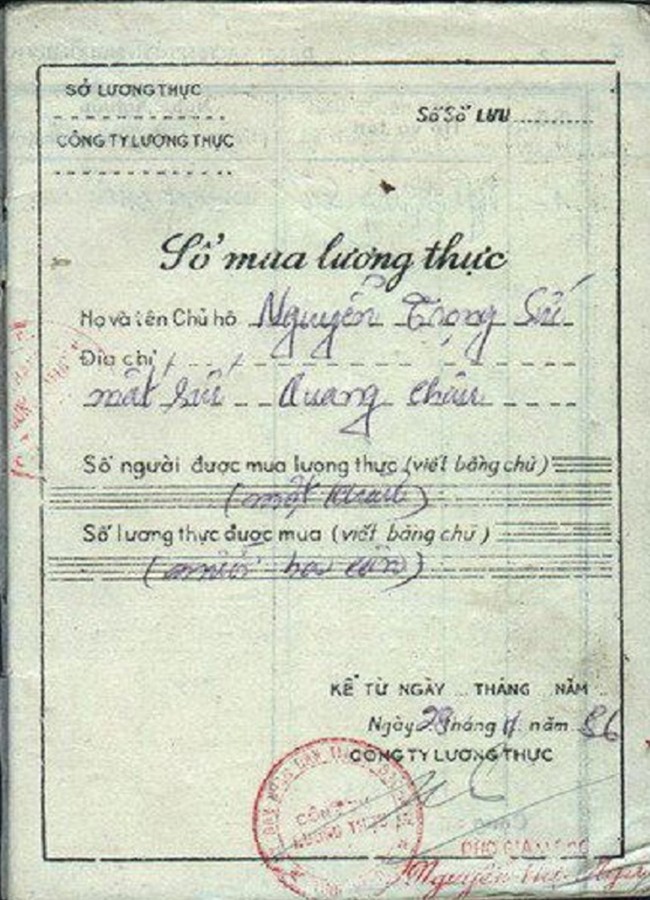 SỞ LƯƠNG THỰC
Số Sổ LƯU
CÔNG TY LƯƠNG THỰC
Sổ mua lương thực
Họ và tên Chủ hộ Nguyễn Trọng Sứ
Địa chỉ
mắt sứ Quang Châu
Số người được mua lương thực (viết bằng chữ)
(một khẩu)
Số lương thực được mua (viết bằng chữ)
(mười ba cân)
KỂ TỪ NGÀY THÁNG NĂM
Ngày 28 tháng 11 năm 86
CÔNG TY LƯƠNG THỰC
CÔNG TY
LƯƠNG THỰC
PHÓ GIÁM ĐỐC
Nguyễn